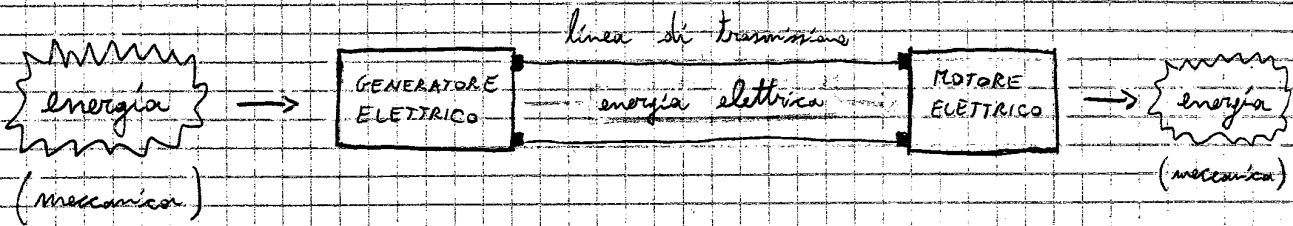 linea di trasmissione
energia
GENERATORE
ELETTRICO
energia elettrica
MOTORE
ELETTRICO
energia
(meccanica)
(meccanica)